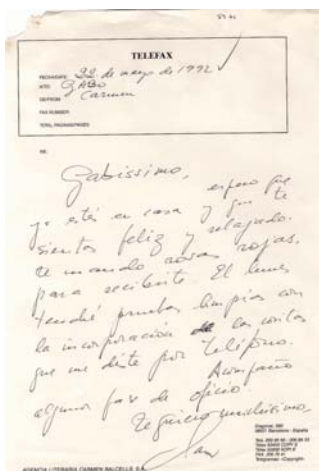 TELEFAX
FECHA/DATE: 22 de mayo de 1992
A/TO: GABO
DE/FROM: Carmen
FAX NUMBER:
TOTAL PAGINAS/PAGES:
RE:
Gabissimo,
espero que
ya estés en casa y que te
sientas feliz y relajado.
Te mando rosas rojas,
para recibirte. El lunes
tendré pruebas limpias con
la incorporación de las
que me diste por teléfono.
Acompaño
algunos fax de oficio
Te quiero muchísimo,
AGENCIA LITERARIA CARMEN BALCELLS, S.A.
Diagonal, 580
08021 Barcelona - España